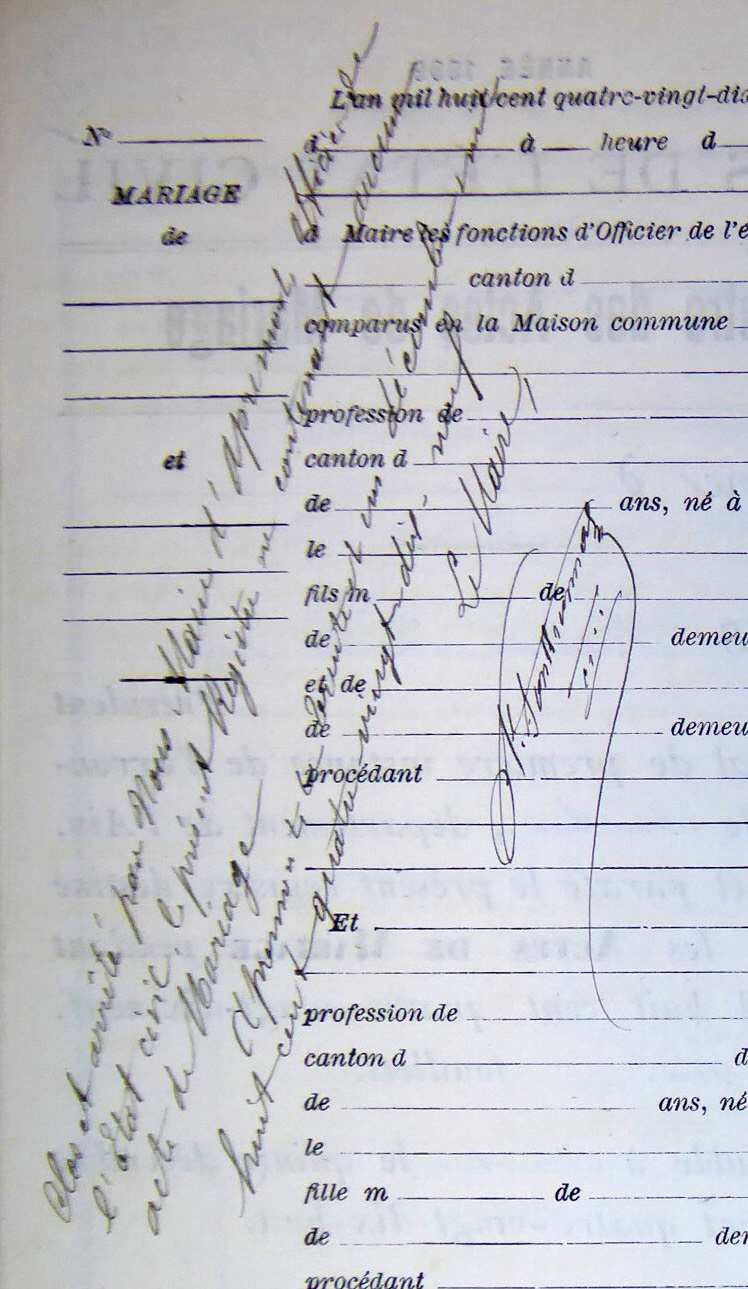 L'an mil huit cent quatre-vingt-dix
N°
d à heure d
MARIAGE
de
d Maire les fonctions d'Officier de l'é
canton d
comparus en la Maison commune
profession de
et
canton d
de ans, né à
le
fils m de
de demeu
et de
de demeu
procédant
Et
profession de
canton d d
de ans, né
le
fille m de
de der
procédant
Clos et arrêté par Nous, Maire d'Apremont Officier de
l'état civil, le présent Registre ne contenant aucun
acte de Mariage
le trente et un décembre mil
huit cent quatre vingt dix neuf
Le Maire,